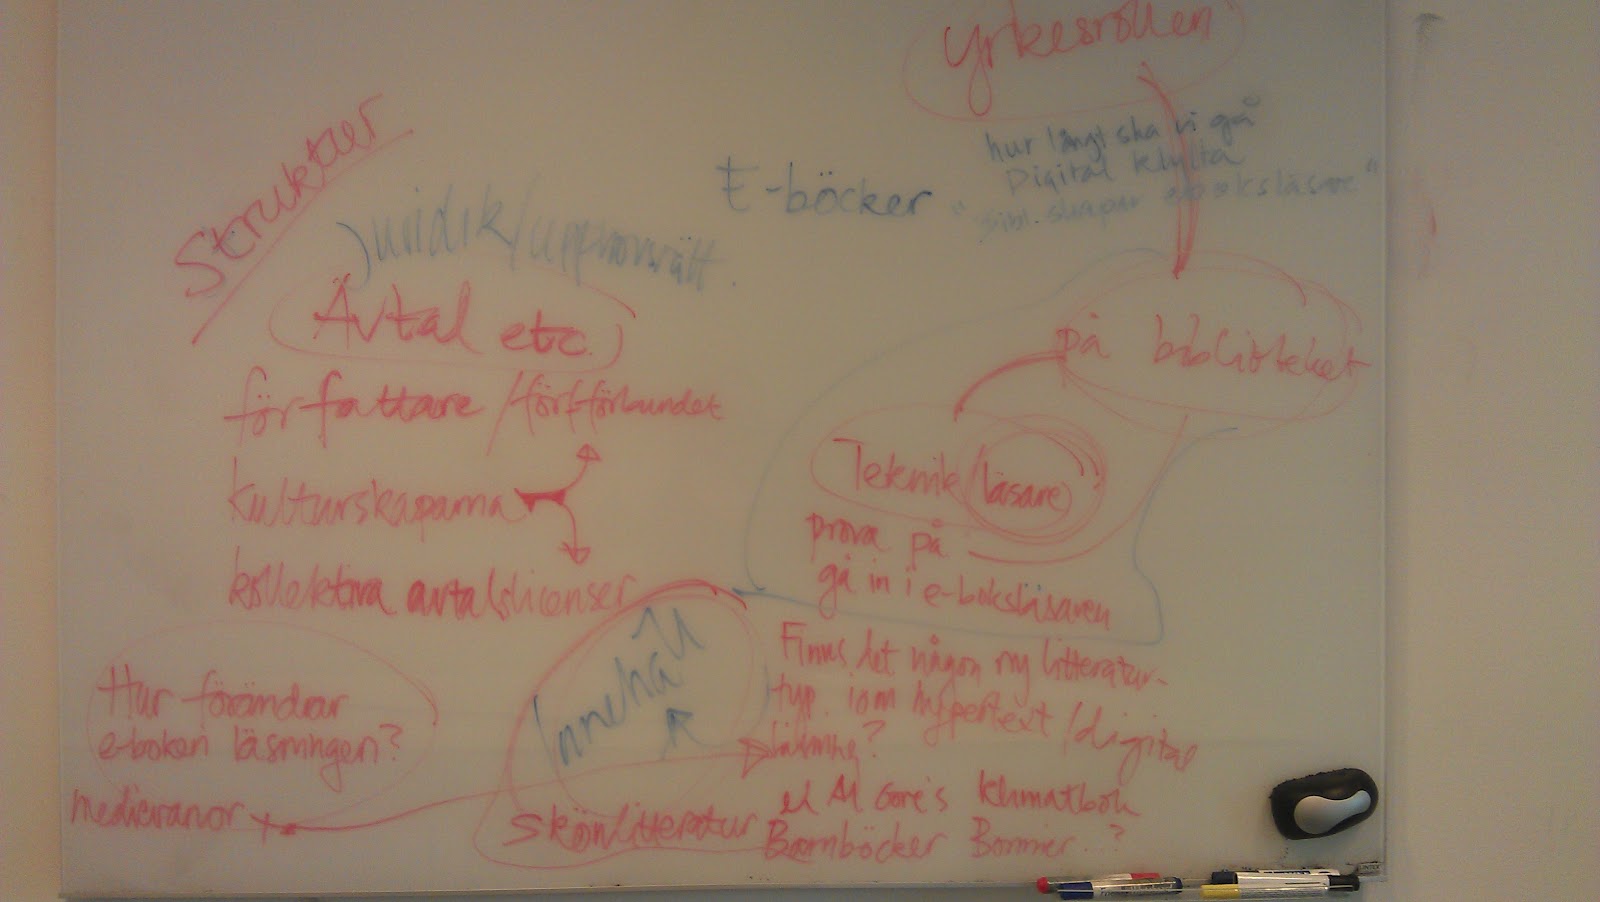 Yrkesrollen
hur långt ska vi gå
Digital klyfta
"Bibl. skapar e-boksläsare"
E-böcker
Struktur
Juridik/upphovsrätt.
Avtal etc.
författare/förf.förbundet
kulturskaparna
kollektiva avtalslicenser
på biblioteket
Teknik (läsare)
prova på
gå in i e-boksläsaren
Innehåll
Finns det någon ny litteratur-
typ. som hypertext/digital
läsning?
Al Gore's klimatbok
Barnböcker Bonnier..?
Skönlitteratur
Hur förändrar
e-boken läsningen?
medievanor